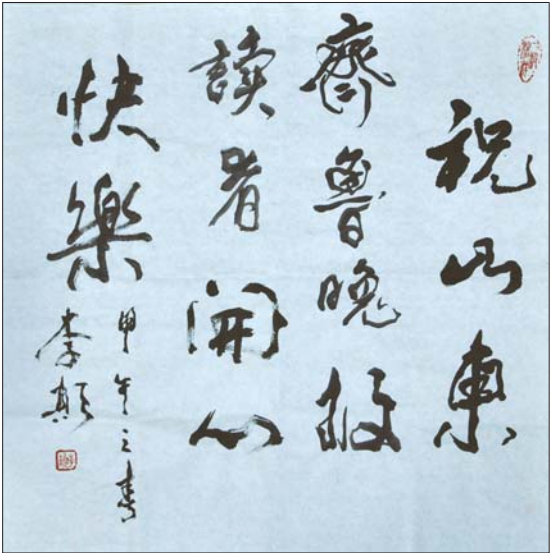 祝山東
齊魯晚報
讀者開心
快樂
甲午之春
李